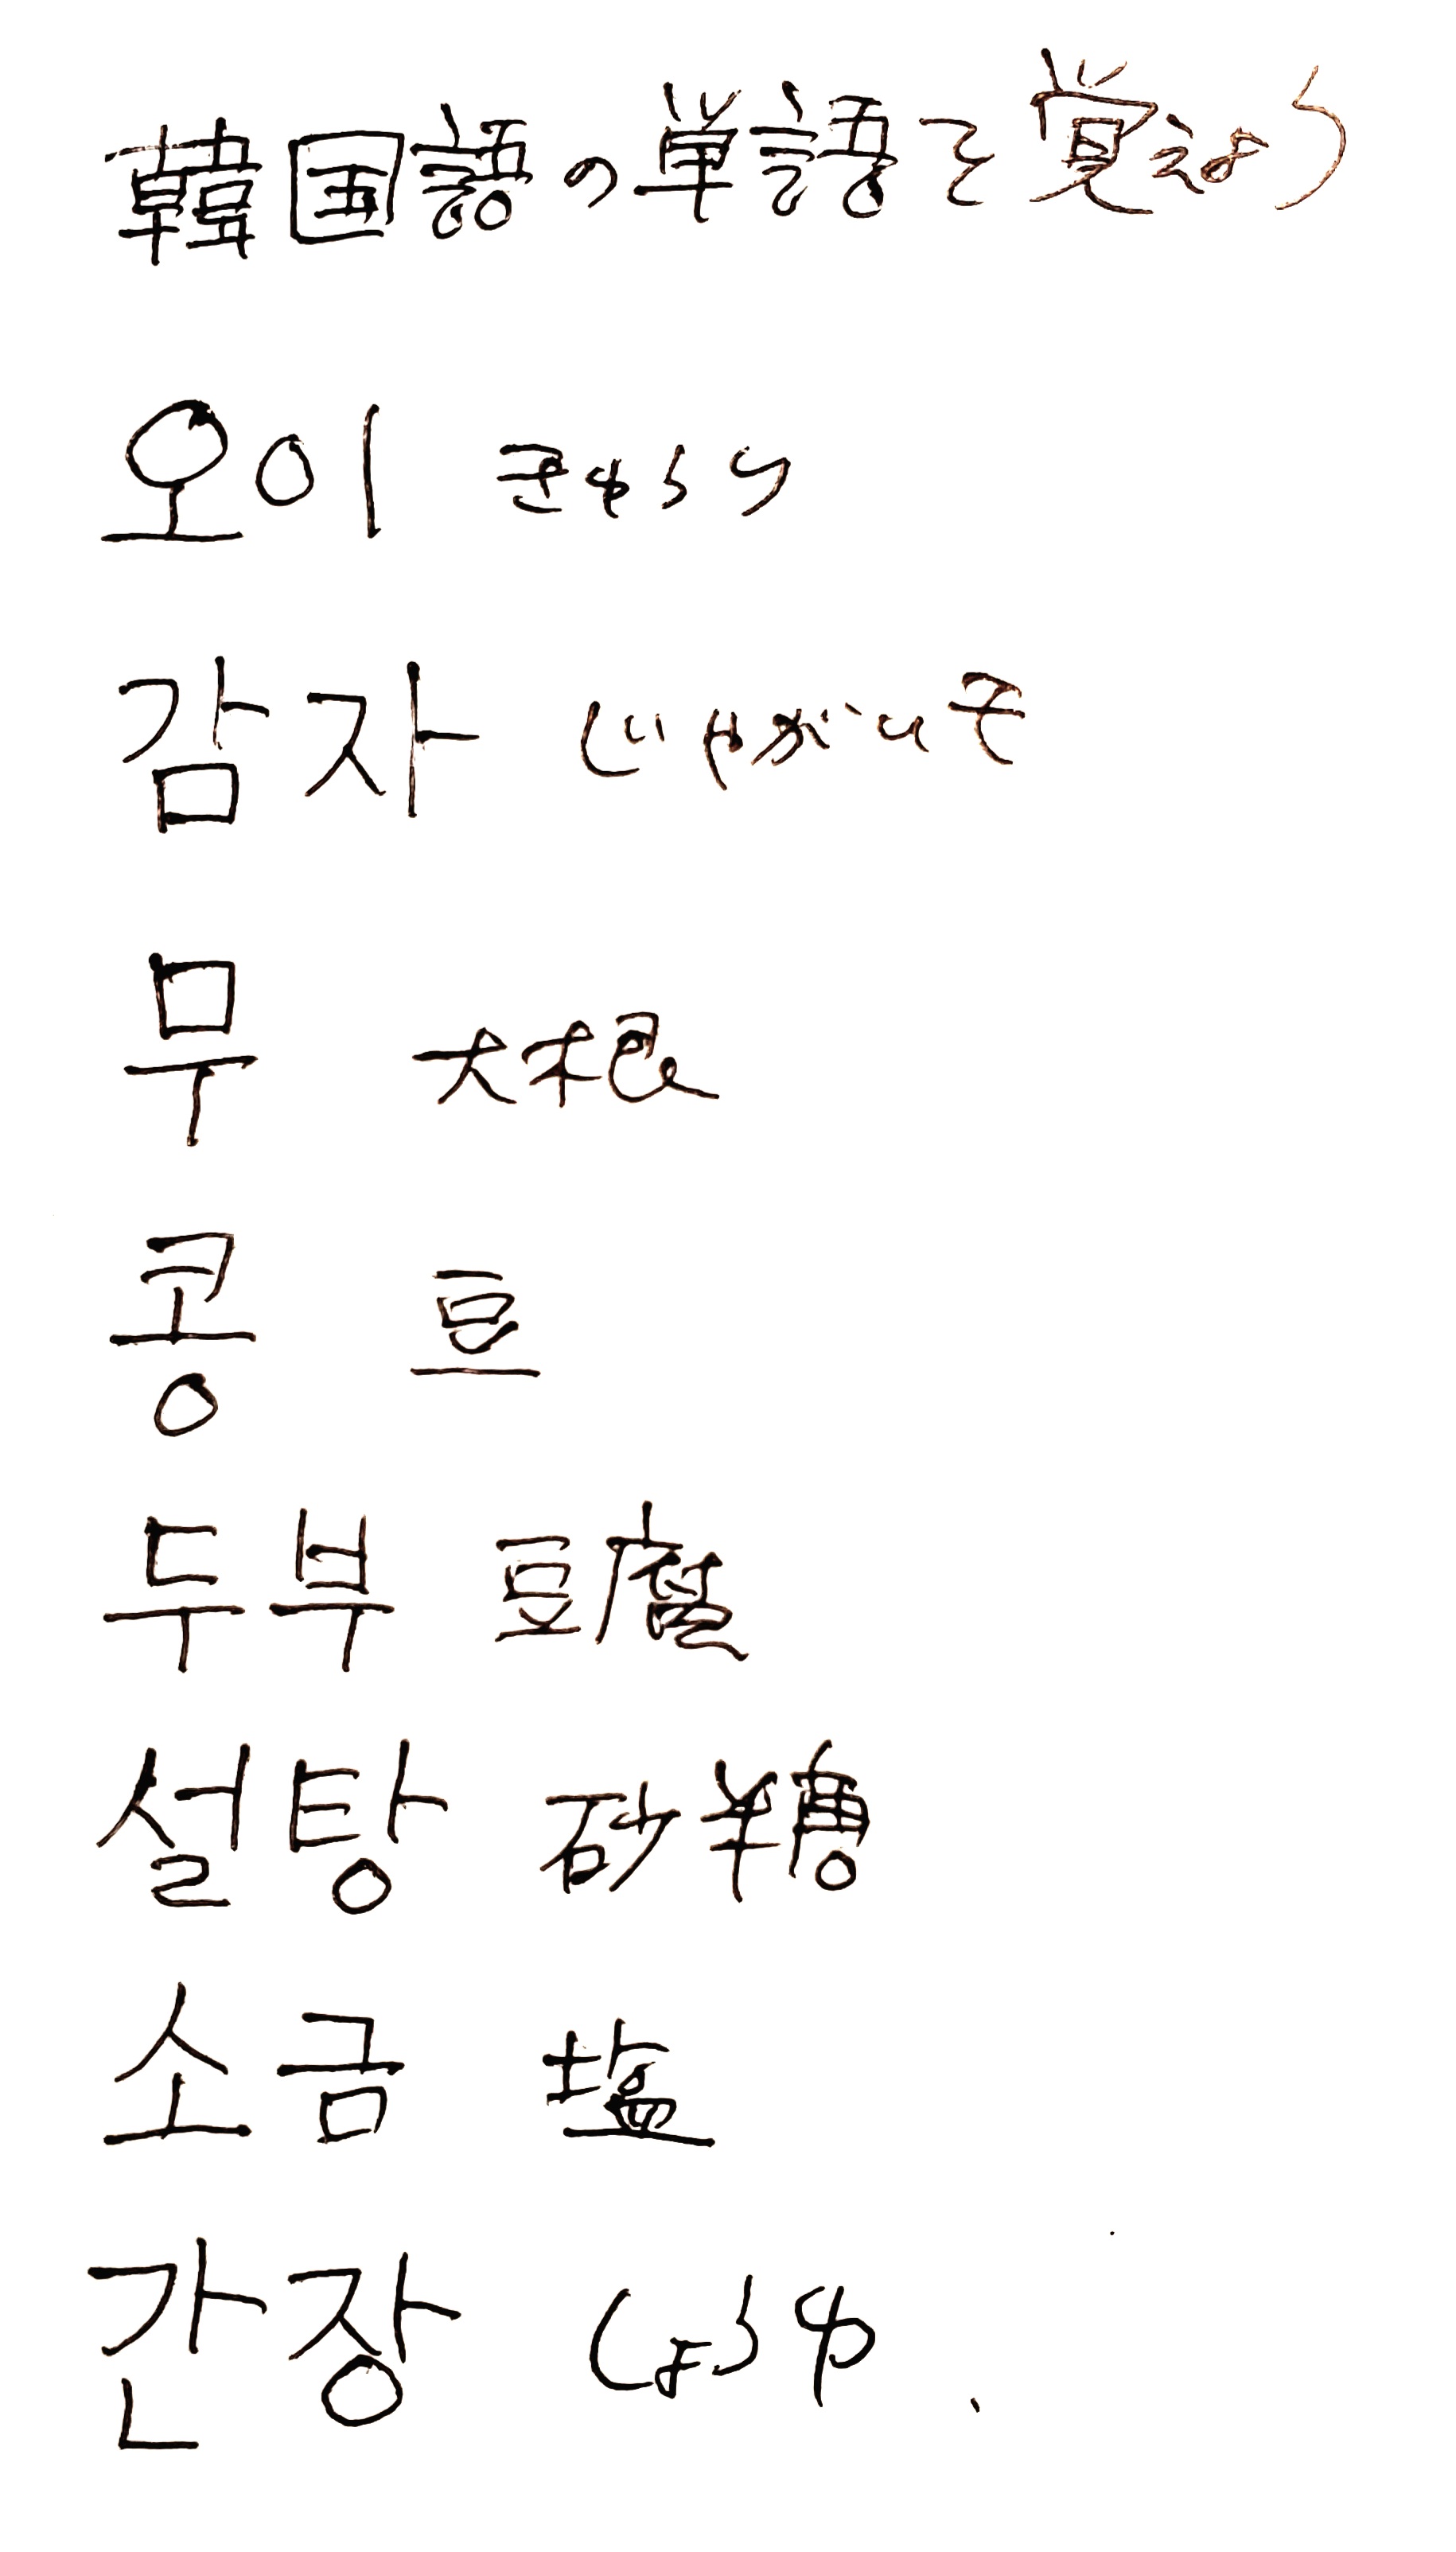 韓国語の単語を覚えよう
오이 きゅうり
감자 じゃがいも
무 大根
콩 豆
두부 豆腐
설탕 砂糖
소금 塩
간장 しょうゆ